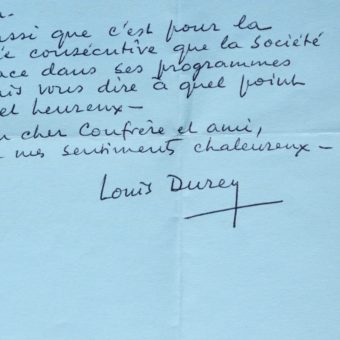 ussi que c'est pour la
consécutive que la Société
ace dans ses programmes
vous dire à quel point
et heureux—
cher Confrère et ami,
mes sentiments chaleureux—
Louis Durey